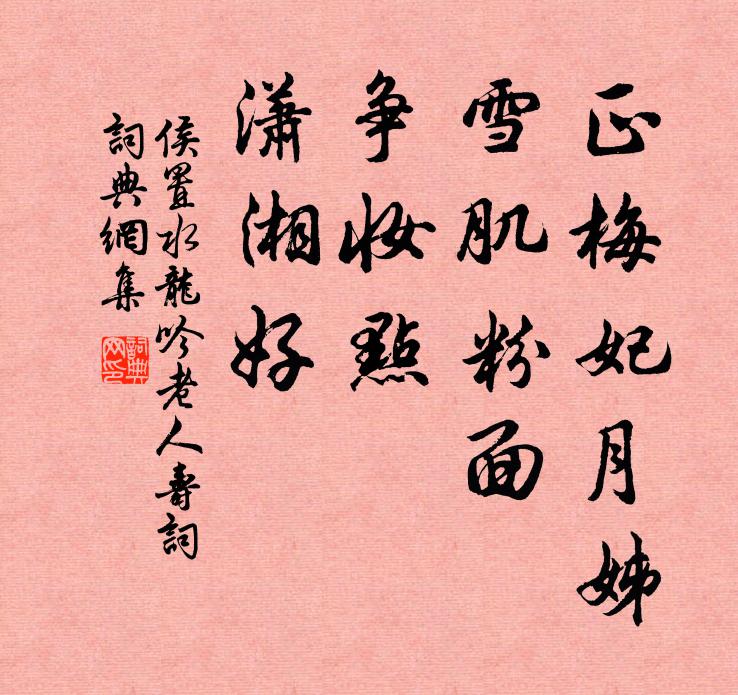 正梅妃月姊
雪肌粉面
争妆點
瀟湘好
侯置水龍吟老人壽詞
詞典網集
詞典网印